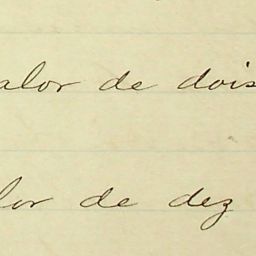 alor de dois
lor de dez